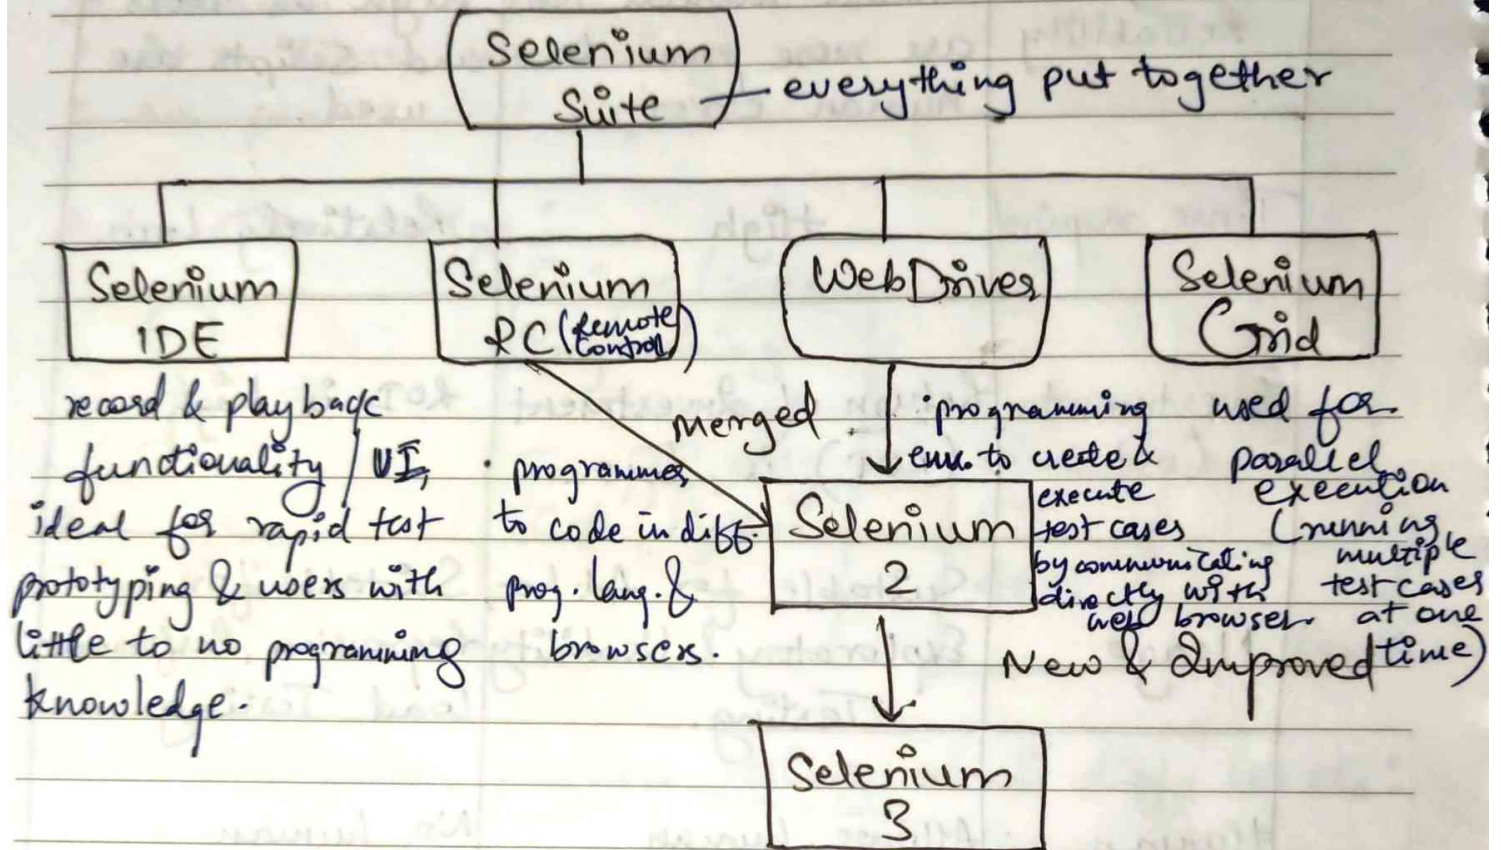 Selenium
Suite
everything put together
Selenium
IDE
Selenium
RC (Remote
Control)
WebDriver
Selenium
Grid
record & playback
functionality / UI,
ideal for rapid test
prototyping & users with
little to no programming
knowledge.
merged
· programmer
to code in diff.
prog. lang. &
browsers.
· programming
env. to create &
execute
test cases
by communicating
directly with
web browser.
used for
parallel
execution
(running
multiple
test cases
at one
time)
Selenium
2
New & Improved
Selenium
3